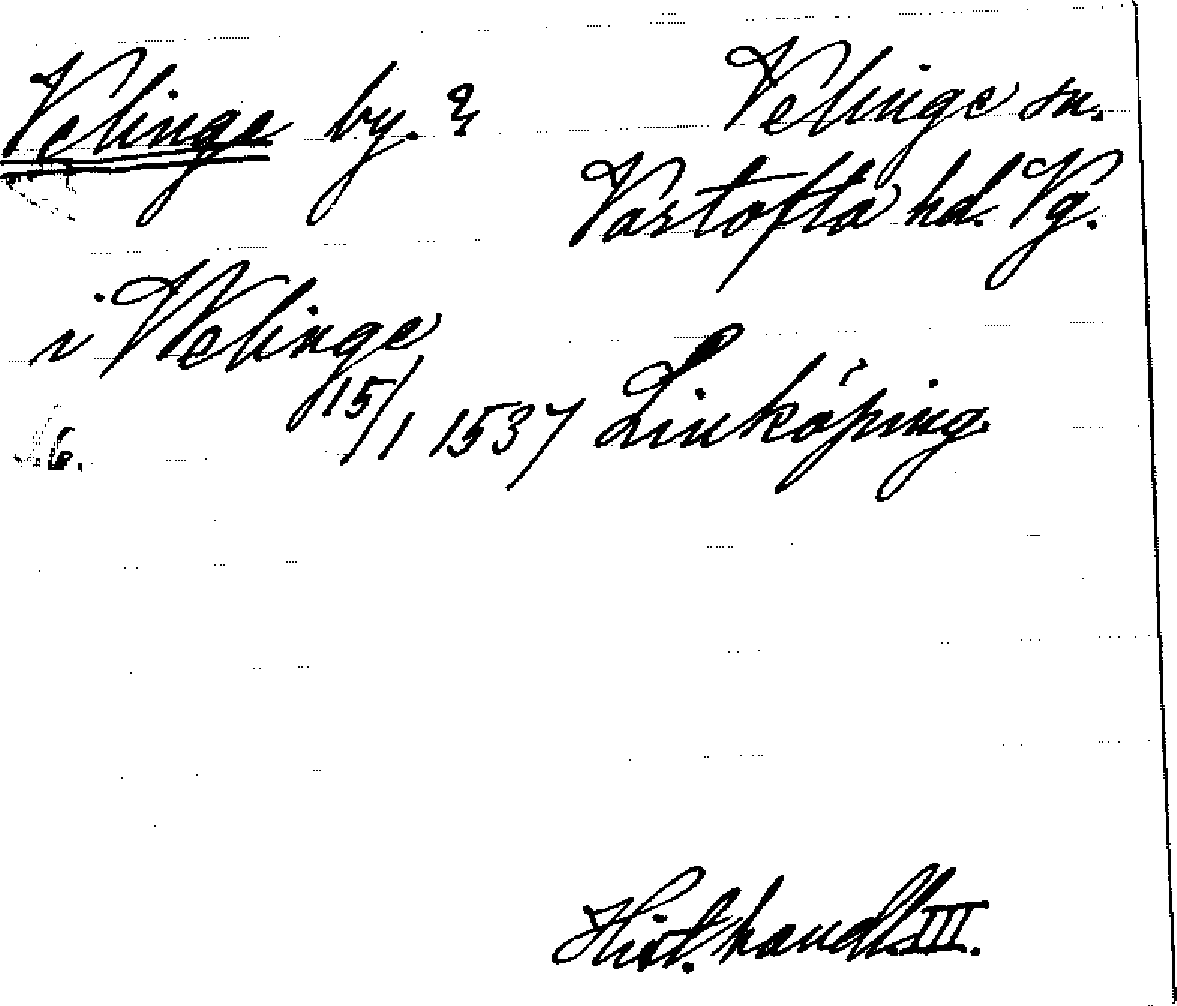 Velinge by. ? Velinge sn.
Vartofta hd. Vg.
i Welinge
15/1 1537 Linköping
6.
Hist. handl. III.